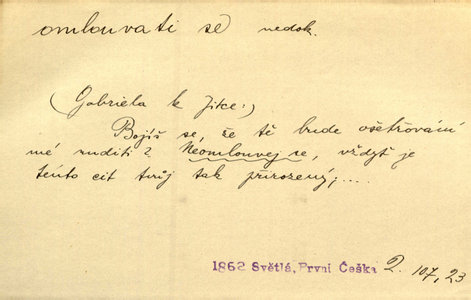 omlouvati se nedok.
(Gabriela k Jitce:)
Bojíš se, že tě bude ošetřování
mé nuditi? Neomlouvej se, vždyť je
tento cit tvůj tak přirozený;....
1862 Světlá, První Češka 2. 107, 23